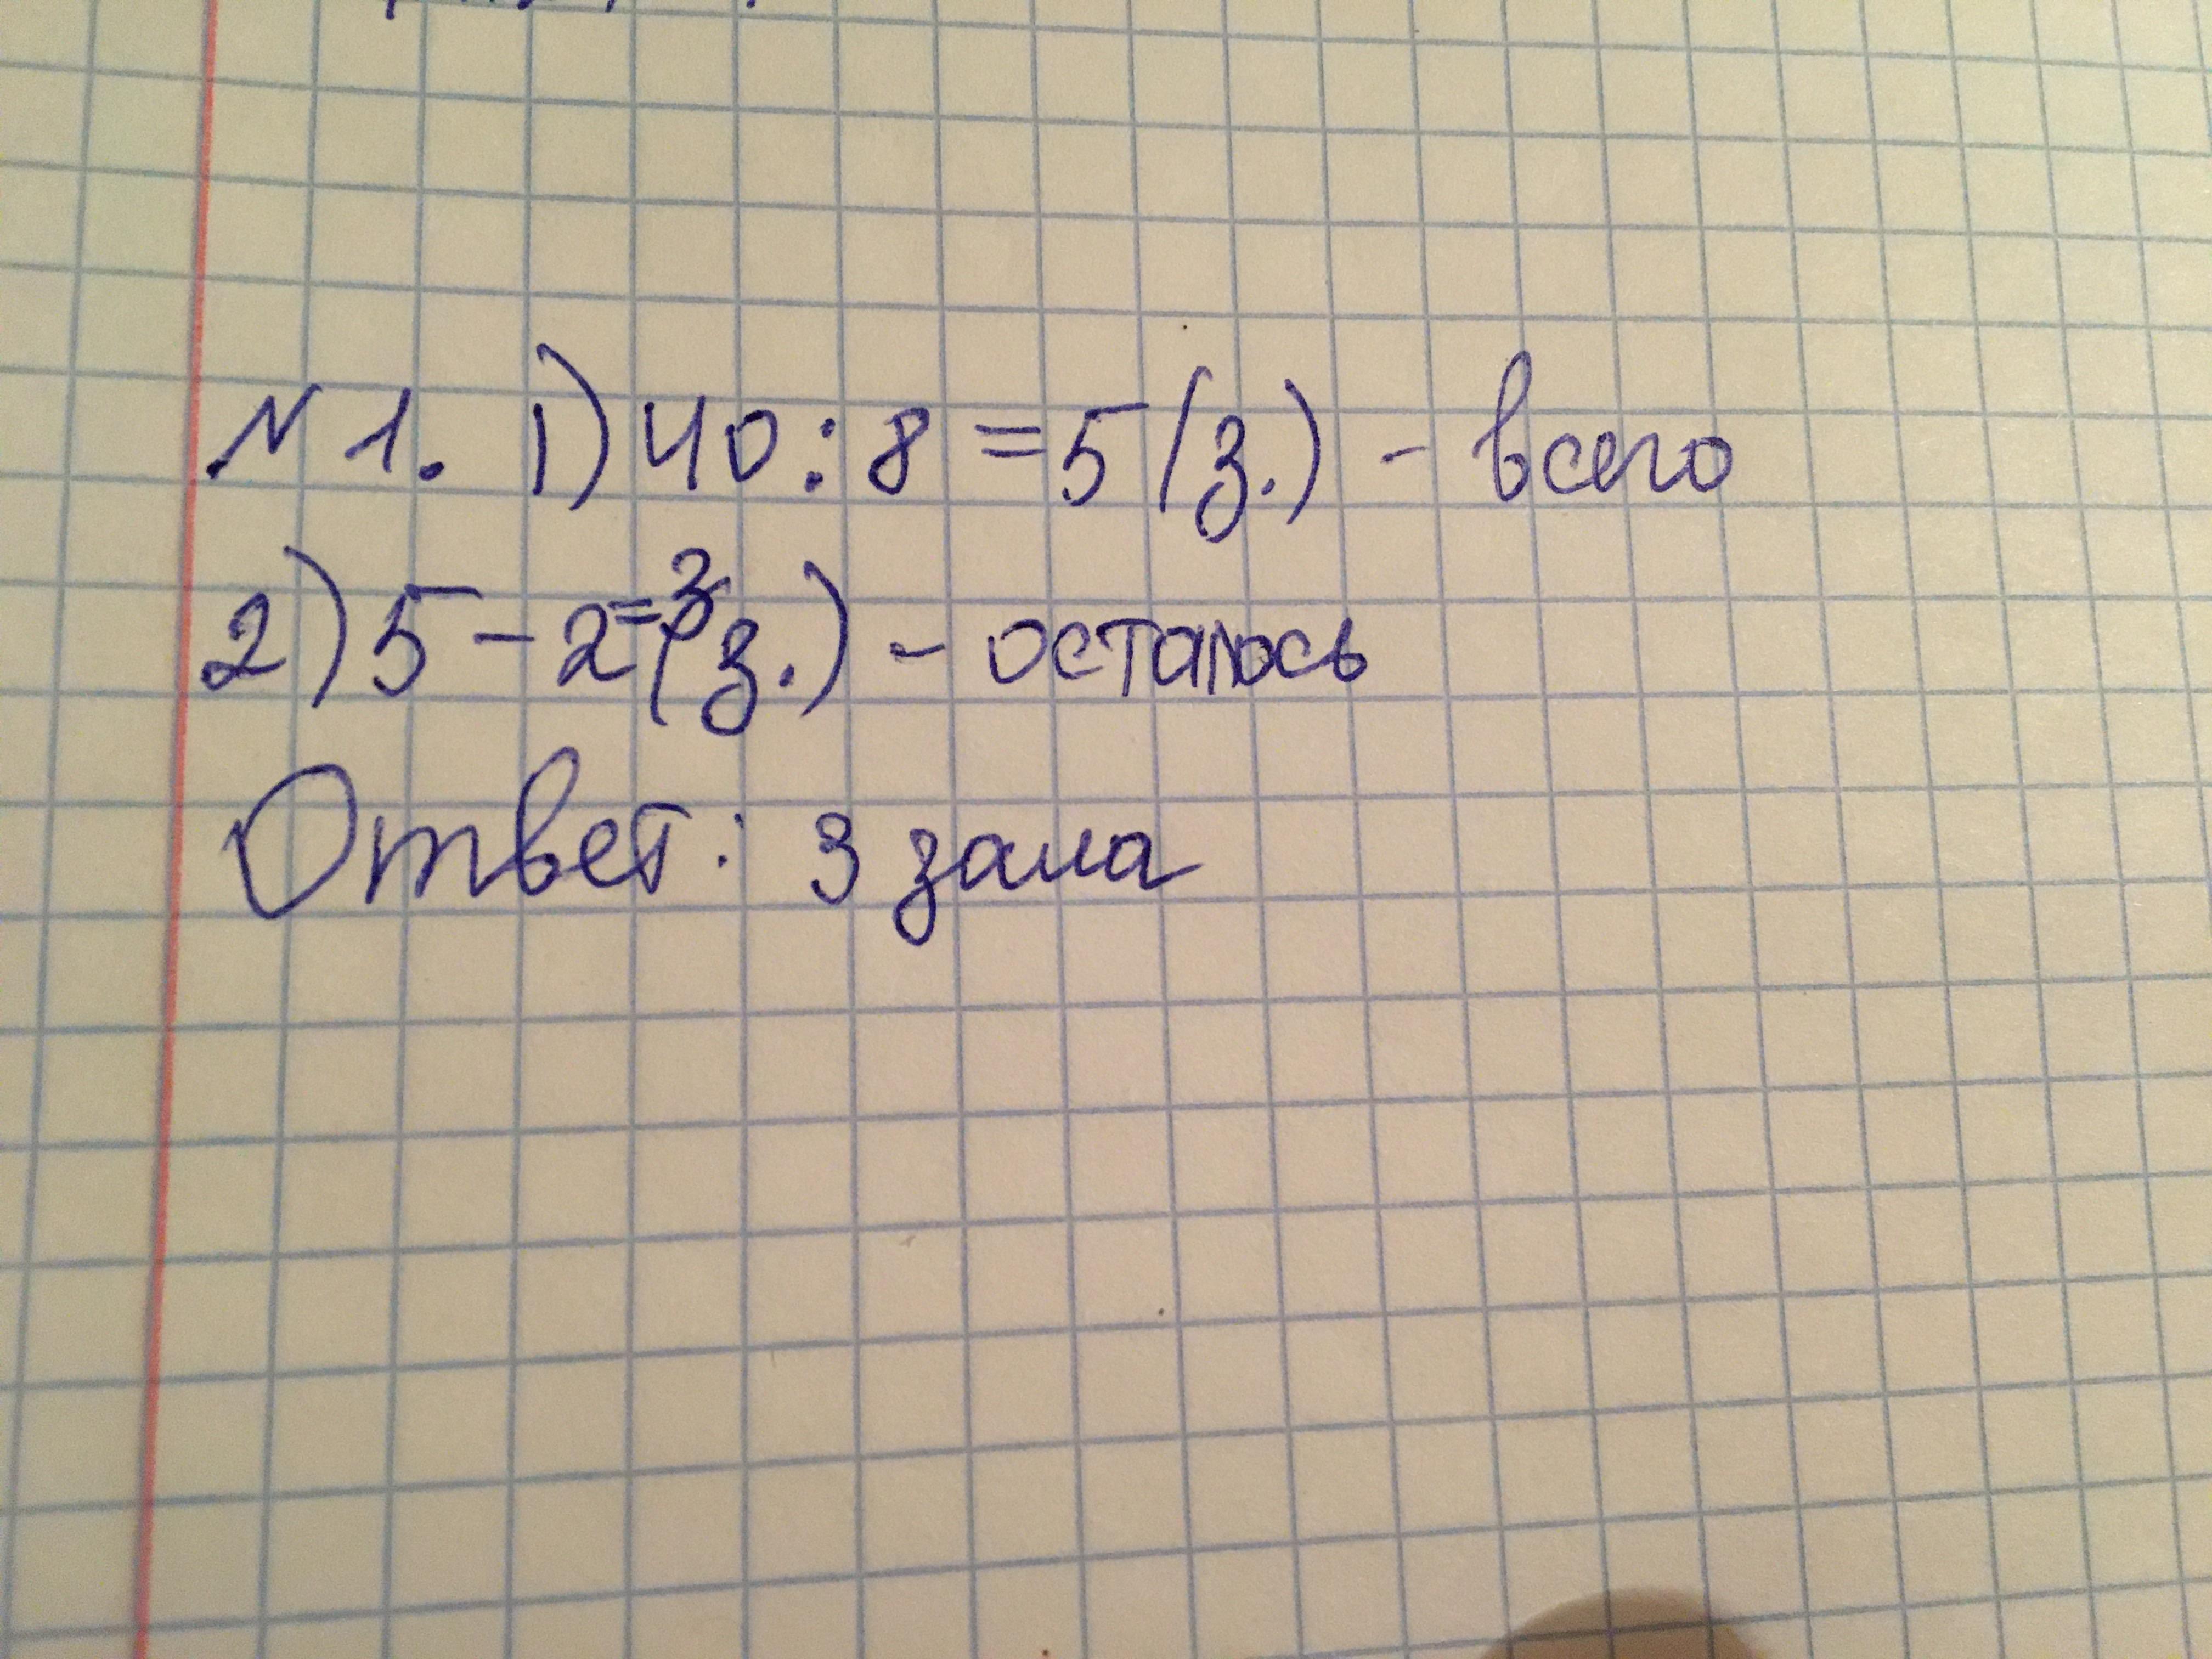 №1. 1) 40:8=5(з.) - всего
2) 5-2=3(з.) - осталось
Ответ: 3 зала